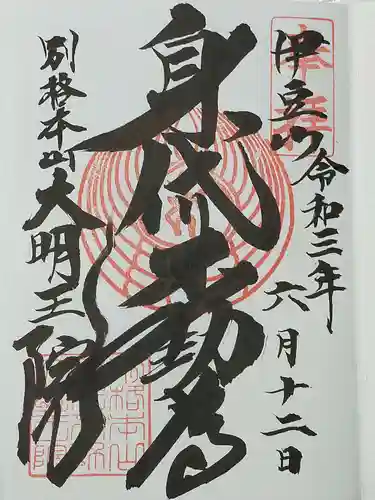 奉拝
伊豆山
令和三年
六月十二日
身代不動尊
別格本山
大明王院